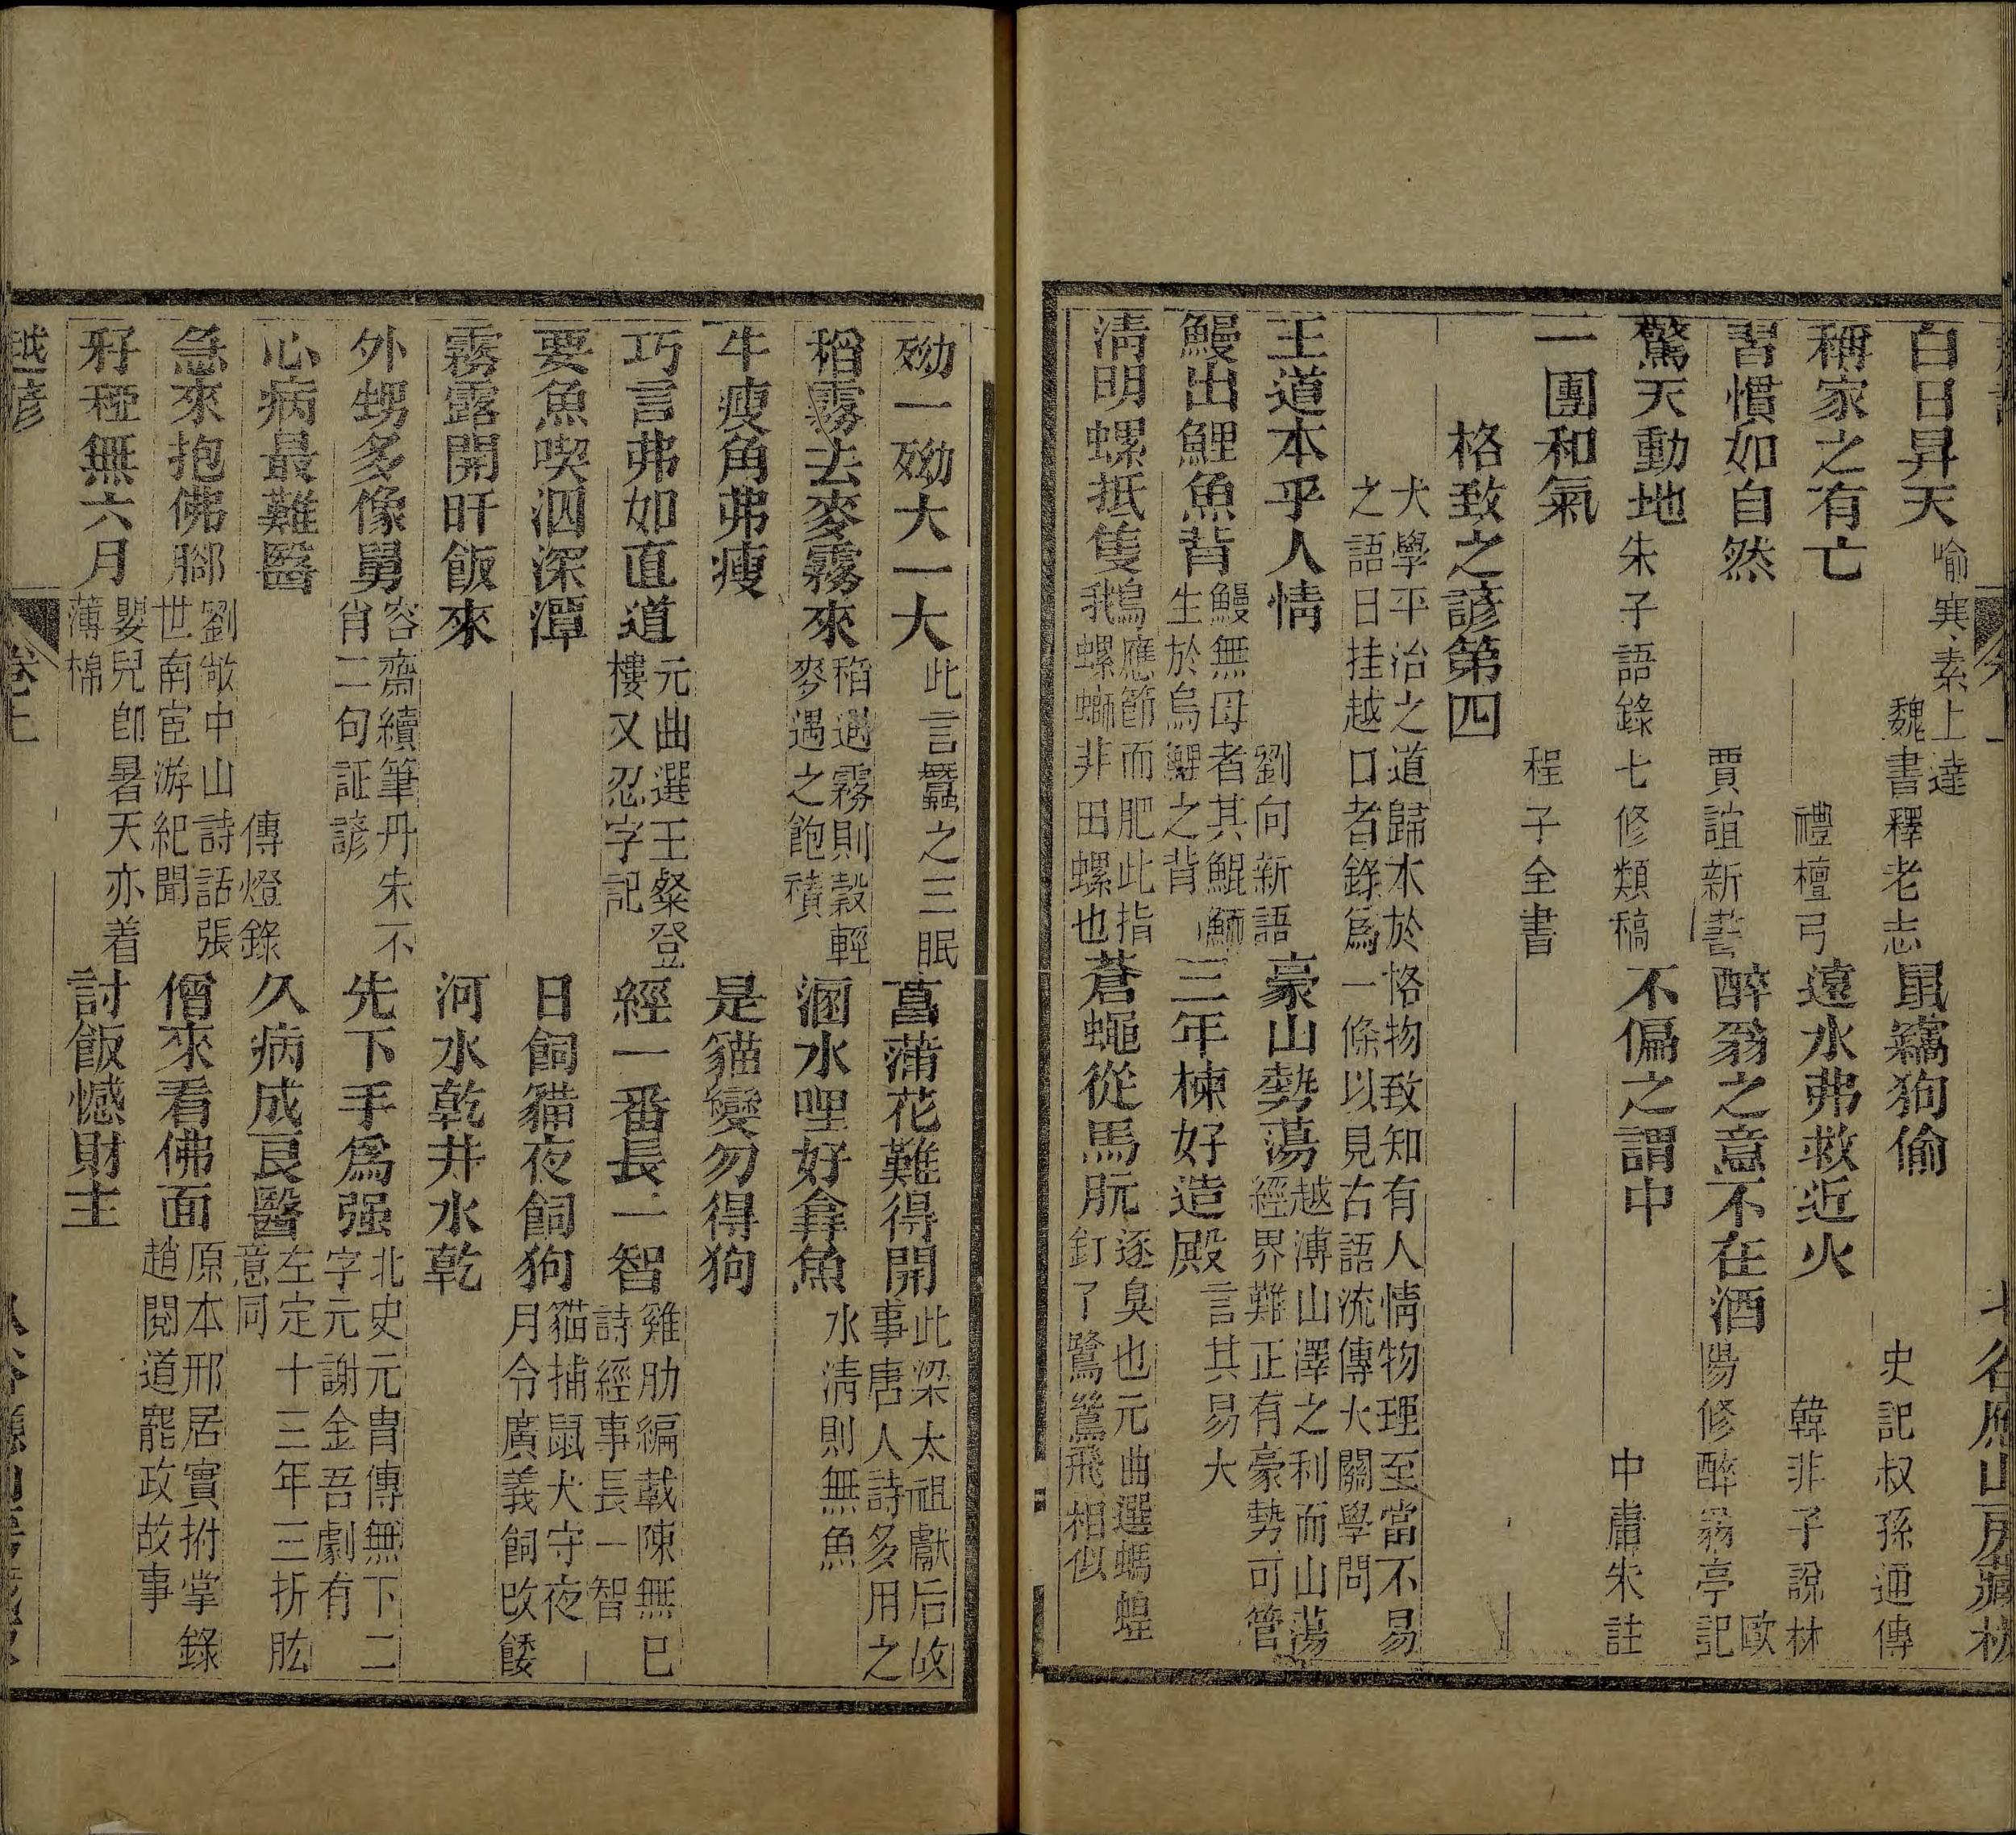 白日昇天 喻寒素上達 魏書釋老志 鼠竊狗偷 史記叔孫通傳
稱家之有亡 禮檀弓 遠水弗救近火 韓非子說林
習慣如自然 賈誼新書 醉翁之意不在酒 歐陽修醉翁亭記
驚天動地 朱子語錄七修類稿 不偏之謂中 中庸朱註
一團和氣 程子全書
格致之諺第四
大學平治之道歸本於格物致知有人情物理至當不易
之語日挂越口者錄爲一條以見古語流傳大關學問
王道本乎人情 劉向新語 豪山勢蕩 越溥山澤之利而山蕩經界難正有豪勢可管
鰻出鯉魚背 鰻無母者其鯤鮞生於烏鯉之背 三年楝好造殿 言其易大
淸明螺抵隻鵝 應節而肥此指我螺螄非田螺也 蒼蠅從馬朊 逐臭也元曲選螞蝗釘了鷺鷥飛相似
㓜一㓜大一大 此言蠶之三眠 菖蒲花難得開 此梁太祖獻后故事唐人詩多用之
稻霧去麥霧來 稻遇霧則穀輕麥遇之飽𥢢 溷水哩好拿魚 水淸則無魚
牛瘦角弗瘦 是貓變勿得狗
巧言弗如直道 元曲選王粲登樓又忍字記 經一番長一智 雞肋編載陳無巳詩經事長一智
要魚喫泗深潭 日飼貓夜飼狗 猫捕鼠犬守夜月令廣義飼改餧
霧露開旰飯來 河水乾井水乾
外甥多像舅 容齋續筆丹朱不肖二句証諺 先下手爲强 北史元胄傳無下二字元謝金吾劇有
心病最難醫 傳燈錄 久病成良醫 左定十三年三折肱意同
急來抱佛腳 劉攽中山詩話張世南宦游紀聞 僧來看佛面 原本邢居實拊掌錄趙閱道罷政故事
㜅𥞩無六月 嬰兒卽暑天亦着薄棉 討飯憾財主
越諺
卷上